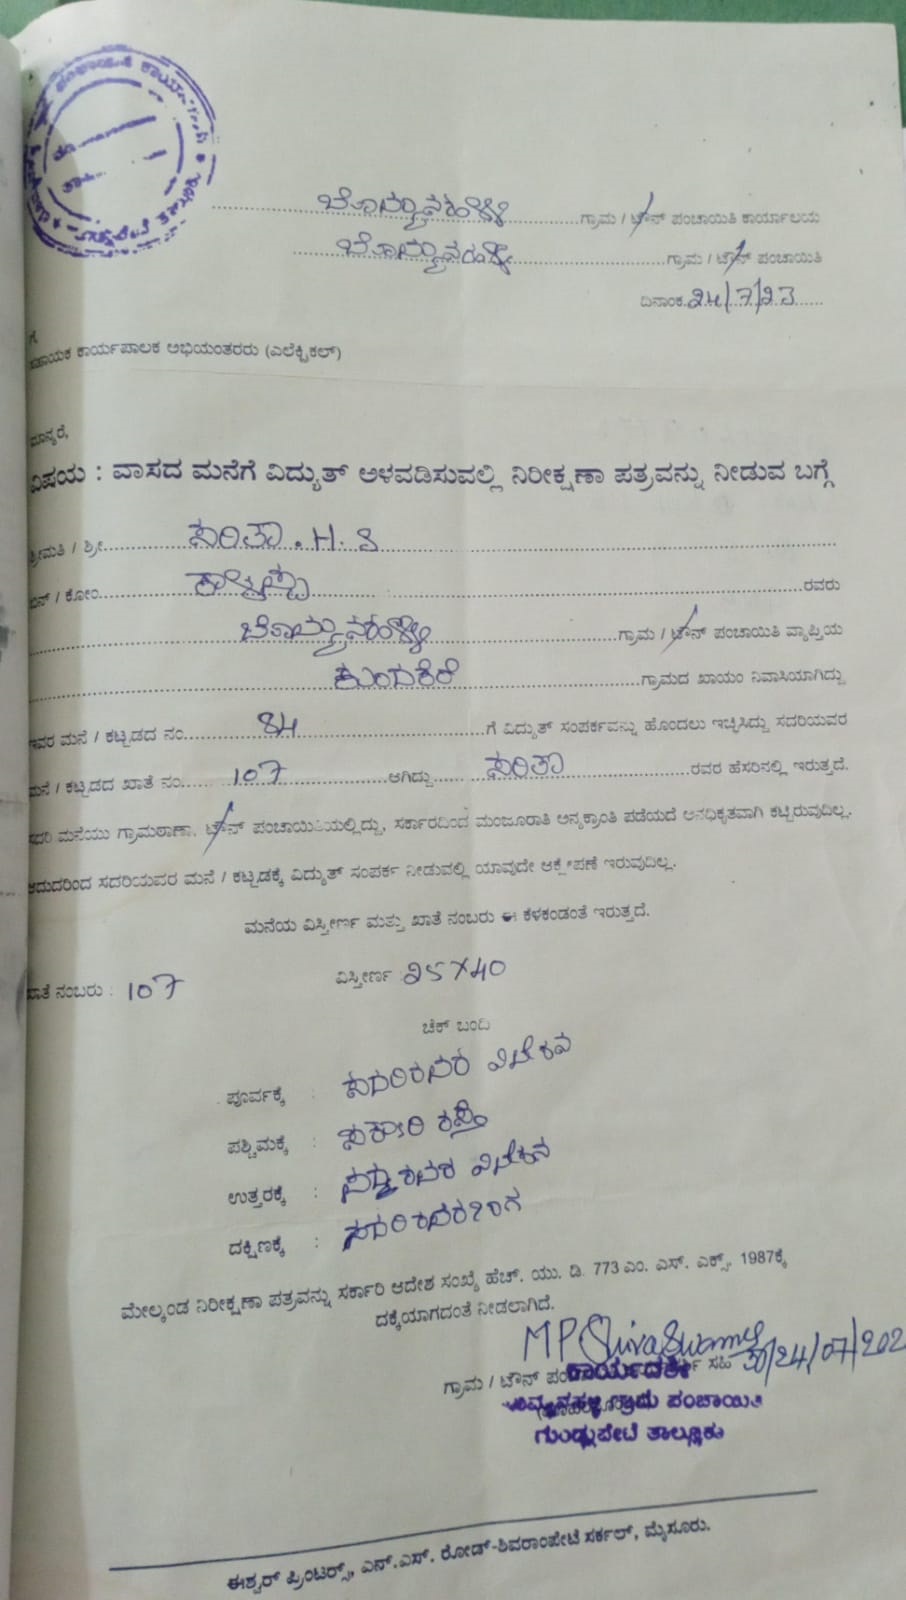 ಬೊಮ್ಮನಹಳ್ಳಿ ಗ್ರಾಮ / ಟೌನ್ ಪಂಚಾಯಿತಿ ಕಾರ್ಯಾಲಯ
ಬೊಮ್ಮನಹಳ್ಳಿ ಗ್ರಾಮ / ಟೌನ್ ಪಂಚಾಯಿತಿ
ದಿನಾಂಕ 24/7/23
ಗೆ,
ಸಹಾಯಕ ಕಾರ್ಯಪಾಲಕ ಅಭಿಯಂತರರು (ಎಲೆಕ್ಟ್ರಿಕಲ್)
ಮಾನ್ಯರೆ,
ವಿಷಯ : ವಾಸದ ಮನೆಗೆ ವಿದ್ಯುತ್ ಅಳವಡಿಸುವಲ್ಲಿ ನಿರೀಕ್ಷಣಾ ಪತ್ರವನ್ನು ನೀಡುವ ಬಗ್ಗೆ
ಶ್ರೀಮತಿ / ಶ್ರೀ ಸರಿತಾ . H. S
ಬಿನ್ / ಕೋಂ ರವರು
ಬೊಮ್ಮನಹಳ್ಳಿ ಗ್ರಾಮ / ಟೌನ್ ಪಂಚಾಯಿತಿ ವ್ಯಾಪ್ತಿಯ
ಕುಂದಕೆರೆ ಗ್ರಾಮದ ಖಾಯಂ ನಿವಾಸಿಯಾಗಿದ್ದು
ಇವರ ಮನೆ / ಕಟ್ಟಡದ ನಂ 84 ಗೆ ವಿದ್ಯುತ್ ಸಂಪರ್ಕವನ್ನು ಹೊಂದಲು ಇಚ್ಛಿಸಿದ್ದು ಸದರಿಯವರ
ಮನೆ / ಕಟ್ಟಡದ ಖಾತೆ ನಂ 107 ಆಗಿದ್ದು ಸರಿತಾ ರವರ ಹೆಸರಿನಲ್ಲಿ ಇರುತ್ತದೆ.
ಸದರಿ ಮನೆಯು ಗ್ರಾಮಠಾಣಾ, ಟೌನ್ ಪಂಚಾಯಿತಿಯಲ್ಲಿದ್ದು, ಸರ್ಕಾರದಿಂದ ಮಂಜೂರಾತಿ ಅನ್ಯಕ್ರಾಂತಿ ಪಡೆಯದೆ ಅನಧಿಕೃತವಾಗಿ ಕಟ್ಟಿರುವುದಿಲ್ಲ.
ಆದುದರಿಂದ ಸದರಿಯವರ ಮನೆ / ಕಟ್ಟಡಕ್ಕೆ ವಿದ್ಯುತ್ ಸಂಪರ್ಕ ನೀಡುವಲ್ಲಿ ಯಾವುದೇ ಆಕ್ಷೇಪಣೆ ಇರುವುದಿಲ್ಲ.
ಮನೆಯ ವಿಸ್ತೀರ್ಣ ಮತ್ತು ಖಾತೆ ನಂಬರು ಈ ಕೆಳಕಂಡಂತೆ ಇರುತ್ತದೆ.
ಖಾತೆ ನಂಬರು : 107 ವಿಸ್ತೀರ್ಣ : 25 X 40
ಚೆಕ್ ಬಂದಿ
ಪೂರ್ವಕ್ಕೆ :
ಪಶ್ಚಿಮಕ್ಕೆ : ಸರ್ಕಾರಿ ರಸ್ತೆ
ಉತ್ತರಕ್ಕೆ :
ದಕ್ಷಿಣಕ್ಕೆ :
ಮೇಲ್ಕಂಡ ನಿರೀಕ್ಷಣಾ ಪತ್ರವನ್ನು ಸರ್ಕಾರಿ ಆದೇಶ ಸಂಖ್ಯೆ ಹೆಚ್. ಯು. ಡಿ. 773 ಎಂ. ಎಸ್. ಎಕ್ಸ್. 1987ಕ್ಕೆ
ದಕ್ಕೆಯಾಗದಂತೆ ನೀಡಲಾಗಿದೆ.
M P Shiva Swamy 24/07/202
ಗ್ರಾಮ / ಟೌನ್ ಸಹಿ
ಕಾರ್ಯದರ್ಶಿ
ಗ್ರಾಮ ಪಂಚಾಯಿತಿ
ಗುಂಡ್ಲುಪೇಟೆ ತಾಲ್ಲೂಕು
ಈಶ್ವರ್ ಪ್ರಿಂಟರ್ಸ್, ಎನ್.ಎಸ್. ರೋಡ್-ಶಿವರಾಂಪೇಟೆ ಸರ್ಕಲ್, ಮೈಸೂರು.